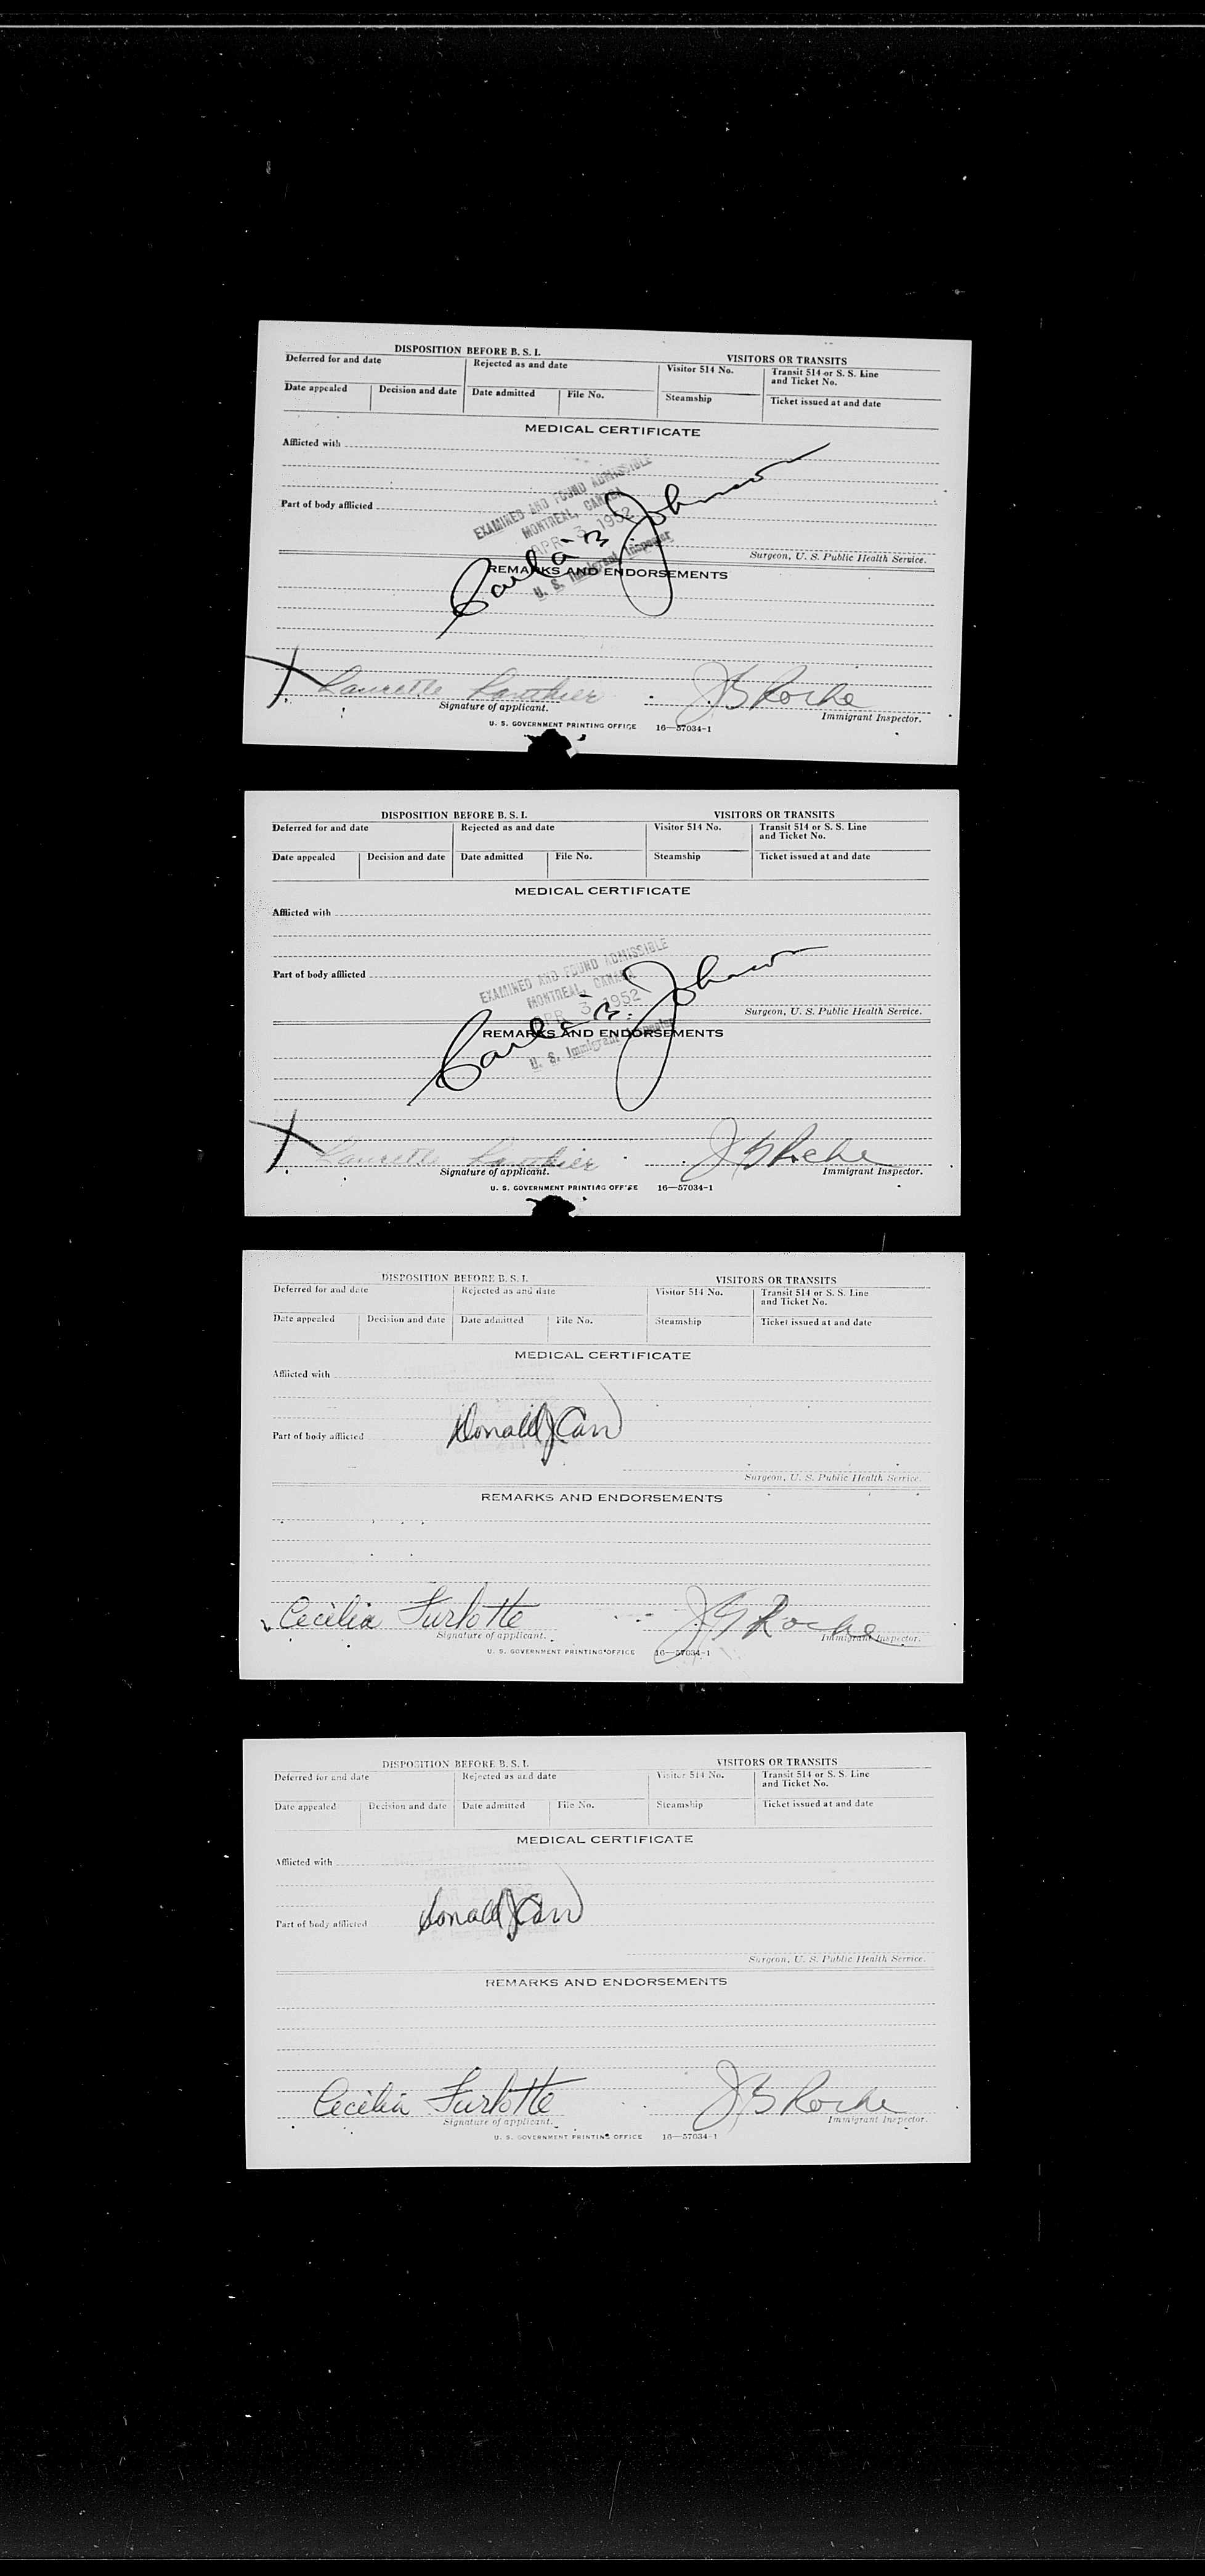 DISPOSITION BEFORE B. S. I. VISITORS OR TRANSITS
Deferred for and date Rejected as and date Visitor 514 No. Transit 514 or S. S. Line and Ticket No.
Date appealed Decision and date Date admitted File No. Steamship Ticket issued at and date
MEDICAL CERTIFICATE
Afflicted with
EXAMINED AND FOUND ADMISSIBLE
MONTREAL, CANADA
Part of body afflicted
APR 3 1952
Carl B. Johnson
U. S. Immigrant Inspector
Surgeon, U. S. Public Health Service.
REMARKS AND ENDORSEMENTS
X Laurette Lauthier J B Roche
Signature of applicant. Immigrant Inspector.
U. S. GOVERNMENT PRINTING OFFICE 16—57034-1
DISPOSITION BEFORE B. S. I. VISITORS OR TRANSITS
Deferred for and date Rejected as and date Visitor 514 No. Transit 514 or S. S. Line and Ticket No.
Date appealed Decision and date Date admitted File No. Steamship Ticket issued at and date
MEDICAL CERTIFICATE
Afflicted with
EXAMINED AND FOUND ADMISSIBLE
MONTREAL, CANADA
Part of body afflicted
APR 3 1952
Carl B. Johnson
U. S. Immigrant Inspector
Surgeon, U. S. Public Health Service.
REMARKS AND ENDORSEMENTS
X Laurette Lauthier J B Roche
Signature of applicant. Immigrant Inspector.
U. S. GOVERNMENT PRINTING OFFICE 16—57034-1
DISPOSITION BEFORE B. S. I. VISITORS OR TRANSITS
Deferred for and date Rejected as and date Visitor 514 No. Transit 514 or S. S. Line and Ticket No.
Date appealed Decision and date Date admitted File No. Steamship Ticket issued at and date
MEDICAL CERTIFICATE
Afflicted with
Donald J Carr
Part of body afflicted
Surgeon, U. S. Public Health Service.
REMARKS AND ENDORSEMENTS
Cecilia Furlotte J B Roche
Signature of applicant. Immigrant Inspector.
U. S. GOVERNMENT PRINTING OFFICE 16—57034-1
DISPOSITION BEFORE B. S. I. VISITORS OR TRANSITS
Deferred for and date Rejected as and date Visitor 514 No. Transit 514 or S. S. Line and Ticket No.
Date appealed Decision and date Date admitted File No. Steamship Ticket issued at and date
MEDICAL CERTIFICATE
Afflicted with
Donald J Carr
Part of body afflicted
Surgeon, U. S. Public Health Service.
REMARKS AND ENDORSEMENTS
Cecilia Furlotte J B Roche
Signature of applicant. Immigrant Inspector.
U. S. GOVERNMENT PRINTING OFFICE 16—57034-1